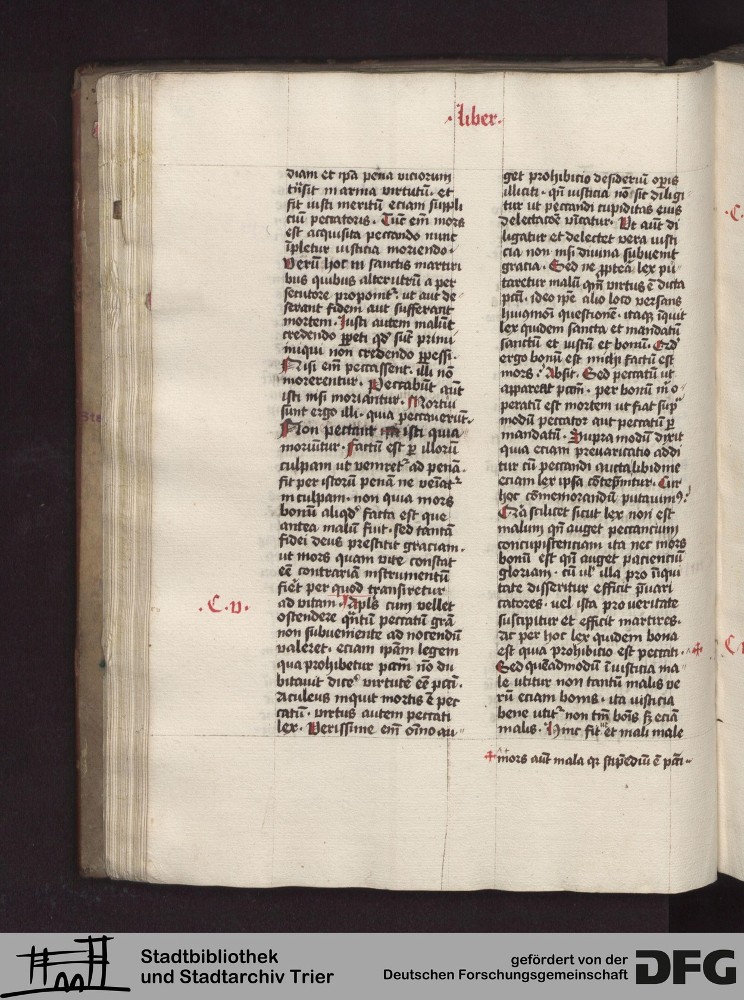 ·liber·
diam et ip̄a pena viciorum
trāsit in arma virtutū· et
fit iusti meritū eciam suppli
ciū peccatoris· Tūc em̄ mors
est acquisita peccando nunc
īpletur iusticia moriendo·
Verū hoc in sanctis martiri
bus quibus alterutrū a per
secutore proponit᷑ ut aut de
serant fidem aut sufferant
mortem· Justi autem malūt
credendo ꝑpeti qd̛ sūt primi
iniqui non credendo ꝑpessi·
Nisi em̄ peccassent· illi nō
morerentur· Peccabūt aūt
isti nisi moriantur· Mortui
sunt ergo illi· quia peccauerūt·
Non peccant isti quia
moriūtur· Factū est ꝑ illorū
culpam ut veniret᷑ ad penā·
fit per istorū penā ne veniat᷑
in culpam· non quia mors
bonū aliqd̛ facta est que
antea malū fuit· sed tantā
fidei deus prestitit graciam·
ut mors quam vite constat
eē contrariā instrumentū
fieret per quod transiretur
·C·v·
ad vitam· Apl̄s cum vellet
ostendere qn̄tū peccatū grā
non subueniente ad nocendū
valeret· eciam ip̄am legem
qua prohibetur pctm̄ nō du
bitauit dice᷑ virtutē eē pcti·
Aculeus inquit mortis ē pec
catū· virtus autem peccati
lex· Verissime em̄ om̄ino au
get prohibicio desideriū opis
illiciti· qn̄ iusticia nō sic dīligi
tur ut peccandi cupiditas eius
delectacōe vīcatur· Vt aūt di
ligatur et delectet vera iusti
cia non nisi diuina subuenit
gracia· Sed ne ꝓpterā lex pu
taretur malū qm̄ virtus ē dicta
pcti· ideo ip̄e alio loco versans
huiꝯmōi questionē· itaqꝫ īquit
lex quidem sancta et mandatū
sanctū et iustū et bonū· Qd̛
ergo bonū est michi factū est
mors· Absit· Sed peccatū ut
appareat pctm̄· per bonū m̄ o
peratū est mortem ut fiat sup̄
modū peccator aut peccatū ꝑ
mandatū· Supra modū dixit
quia eciam preuaricatio addi
tur cū peccandi aucta libidine
eciam lex ipsa cōtēpnitur· Cur
hoc cōmemorandū putauimꝰ?
Qr̄ scilicet sicut lex non est
malum qn̄ auget peccancium
concupiscenciam ita nec mors
bonū est qn̄ auget pacienciū
gloriam· cū ul̛ illa pro īiqui
tate disseritur efficit p̄uari
catores· uel ista pro veritate
suscipitur et efficit martires·
Ac per hoc lex quidem bona
est quia prohibicio est peccati·
Sed queādmodū īiusticia ma
le utitur non tantū malis ve
rū eciam bonis· ita iusticia
bene utit᷑ non tm̄ bois sꝫ eciā
malis· Hinc fit ut et mali male
+mors aūt mala qꝛ stipēdiū ē pcti·
Stadtbibliothek
und Stadtarchiv Trier
gefördert von der
Deutschen Forschungsgemeinschaft
DFG